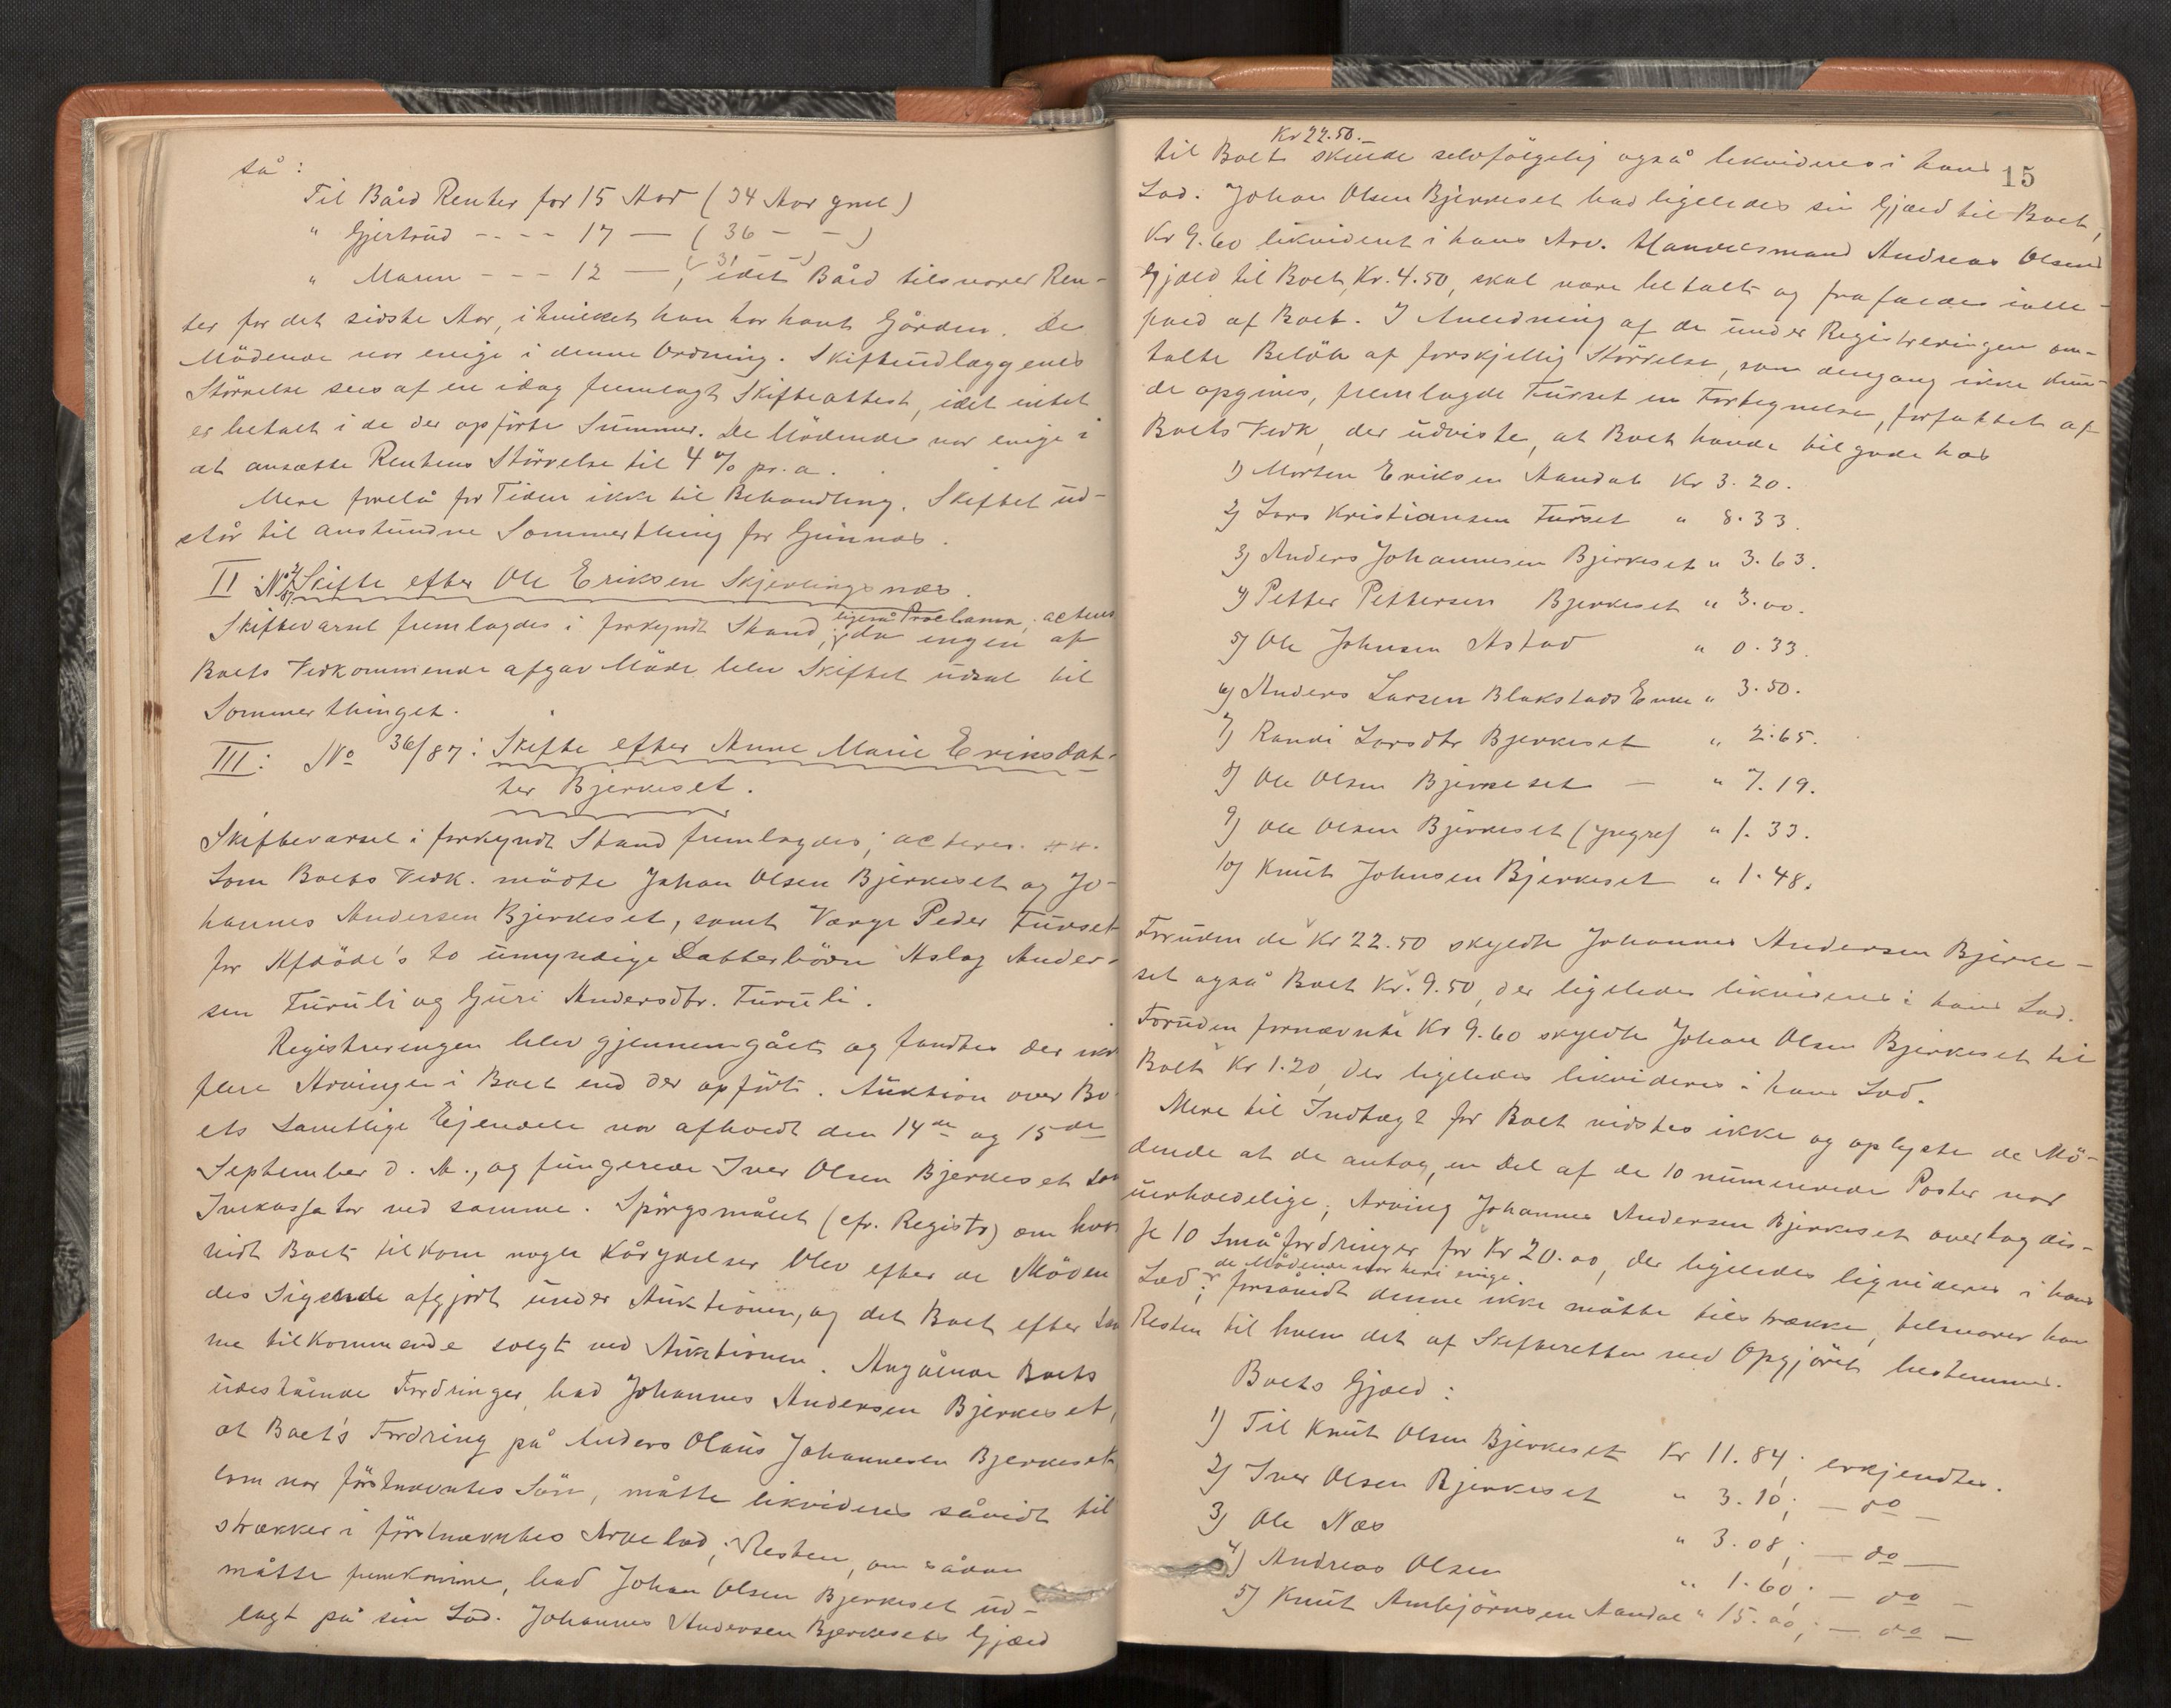 så:
Til Båid Renter for 15 Aar (34 Aar gml)
" Gjertrud - - - - 17 — (36 — —)
" Maren - - - 12 — (31 — —), idet Båid tilsvarer Ren-
ter for det sidste Aar, i hvilket han har havt Gården. De
Mødende var enige i denne Ordning. Skifteudlæggenes
Størrelse sees af en idag fremlagt Skifteattest, idet intet
er betalt i de der opførte Summer. De Mødende var enige i
at ansætte Rentens Størrelse til 4 % pr. a.
Mere forelå for Tiden ikke til Behandling. Skiftet ud-
står til anstundne Sommerthing for Gimnæs.
II: No Skifte efter Ole Eriksen Skjerlingsnæs.
Skiftevarsel fremlagdes i forkyndt Stand, ligeså Proclama; acteres
; da ingen af
Boets Vedkommende afgav Møde blev Skiftet udsat til
Sommerthinget.
III: No 36/87: Skifte efter Anne Marie Eriksdat-
ter Bjerkeset.
Skiftevarsel i forkyndt Stand fremlagdes; acteres.
Som Boets Vedk. mødte Johan Olsen Bjerkeset og Jo-
hannes Andersen Bjerkeset, samt Værge Peder Furset
for Afdøde's to umyndige Datterbørn Aslag Ander-
sen Furuli og Guri Andersdtr. Furuli.
Registreringen blev gjennemgået og fandtes der ikke
flere Arvinger i Boet end der opført. Auktion over Bo-
ets samtlige Ejendele var afholdt den 14de og 15de
September d. A., og fungerede Iver Olsen Bjerkeset som
Inkassator ved samme. Spørgsmålet (cfr. Registr) om hvor
vidt Boet tilkom nogle Kårydelser blev efter de Møden
des Sigende afgjort under Auktionen, og det Boet efter sam
me tilkommende solgt ved Auktionen. Angående Boets
udestående Fordringer, bad Johannes Andersen Bjerkeset,
at Boet's Fordring på Anders Olaus Johannesen Bjerkeset,
som var førstnævntes Søn, måtte likvideres såvidt til
strækker i førstnævntes Arvelod; Resten, om sådan
måtte fremkomme, bad Johan Olsen Bjerkeset ud-
lagt på sin Lod. Johannes Andersen Bjerkesets Gjæld
15
Kr 22.50.
til Boet skulde selvfølgelig også likvideres i hans
Lod. Johan Olsen Bjerkeset bad ligeledes sin Gjæld til Boet,
Kr 9.60 likvideret i hans Arv. Handelsmand Andreas Olsens
Gjæld til Boet, Kr. 4.50, skal være betalt og frafaldes
af Boet. I Anledning af de under Registreringen om-
talte Beløb af forskjellig Størrelse, som dengang ikke kun-
de opgives, fremlagde Furset en Fortegnelse, forfattet af
Boets Vedk, der udviste, at Boet havde tilgode hos
1) Morten Eriksen Aandal Kr 3.20.
2) Lars Kristiansen Furset " 8.33.
3) Anders Johannesen Bjerkeset " 3.63.
4) Petter Pettersen Bjerkeset " 3.00.
5) Ole Johnsen Astad " 0.33.
6) Anders Larsen Blakstads Enke " 3.50.
7) Randi Larsdtr Bjerkeset " 2.65.
8) Ole Olsen Bjerkeset — " 7.19.
9) Ole Olsen Bjerkeset (yngre) " 1.33.
10) Knut Johnsen Bjerkeset " 1.48.
Foruden de Kr 22.50 skyldte Johannes Andersen Bjerke-
set også Boet Kr. 9.50, der ligeledes likvideres i hans Lod.
Foruden fornævnte Kr 9.60 skyldte Johan Olsen Bjerkeset til
Boet Kr 1.20, der ligeledes likvideres i hans Lod.
Mere til Indtægt for Boet vidstes ikke og oplyste de Mø-
dende at de antog, en Del af de 10 nummerede Poster var
uerholdelige; Arving Johannes Andersen Bjerkeset overtog dis-
se 10 Småfordringer for Kr 20.00, der ligeledes liqvideres i hans
de Mødende var heri enige
Lod; forsåvidt denne ikke måtte tilstrække, tilsvarer han
Resten til hvem det af Skifteretten ved Opgjøret bestemmes.
Boets Gjæld:
1) Til Knut Olsen Bjerkeset Kr 11.84; erkjendtes.
2) Iver Olsen Bjerkeset " 3.10; — do —
3) Ole Næs " 3.08; — do —
4) Andreas Olsen " 1.60; — do —
5) Knut Ambjørnsen Aandal " 15.00; — do —